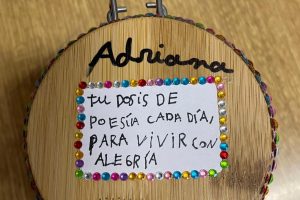 Adriana
tu DOSIS DE
POESÍA CADA DÍA,
PARA VIVIR CON
ALEGRÍA